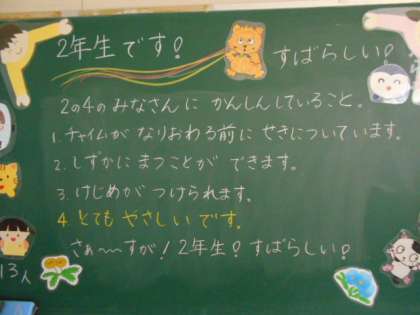 2年生です!
すばらしい!
2の4のみなさんに かんしんしていること。
1. チャイムが なりおわる前に せきについています。
2. しずかに まつことが できます。
3. けじめが つけられます。
4. とても やさしいです。
さぁ〜〜すが! 2年生! すばらしい!
13人